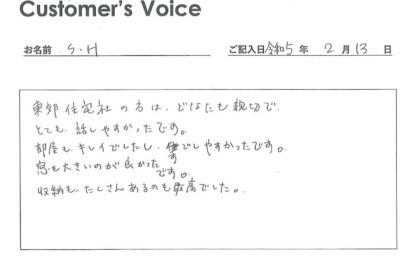 Customer's Voice
お名前 S・H ご記入日 令和5年 2月13日
東郊住宅社の方は、どなたも親切で、
とても、話しやすかったです。
部屋も、キレイでしたし、すごしやすかったです。
窓も大きいのが良かったです。
収納も、たくさんあるのも最高でした。